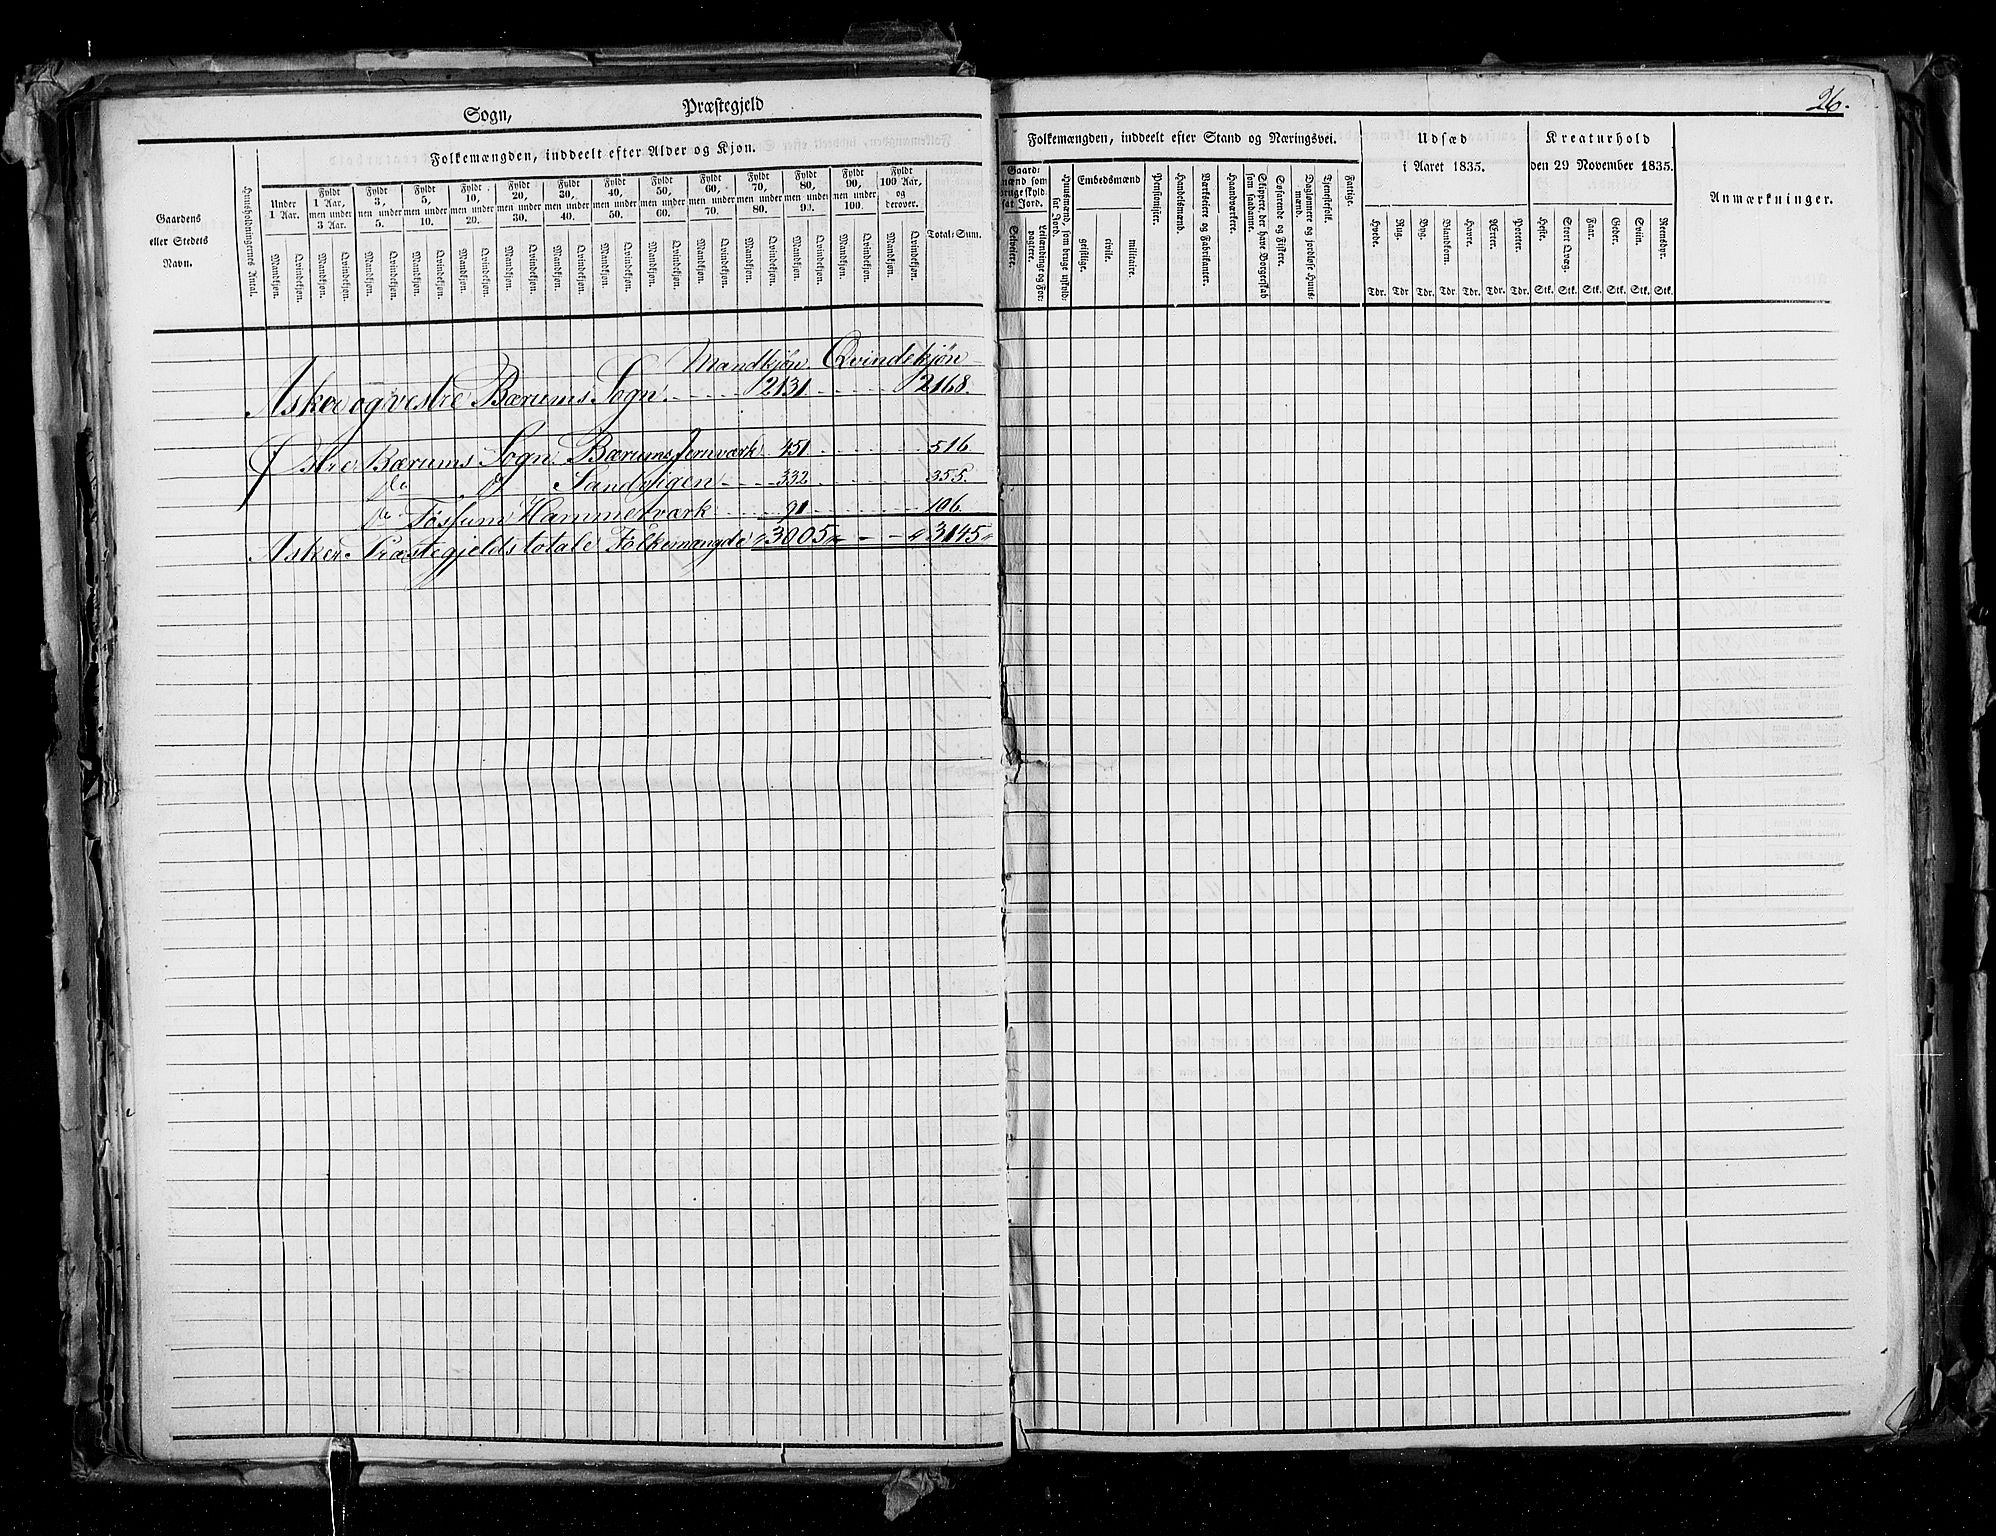 Sogn, Præstegjeld
26.
Folkemængden, inddeelt efter Alder og Kjøn.
Gaardens eller Stedets Navn.
Huusholdningernes Antal.
Under 1 Aar.
Fyldt 1 Aar, men under 3 Aar.
Fyldt 3, men under 5.
Fyldt 5, men under 10.
Fyldt 10, men under 20.
Fyldt 20, men under 30.
Fyldt 30, men under 40.
Fyldt 40, men under 50.
Fyldt 50, men under 60.
Fyldt 60, men under 70.
Fyldt 70, men under 80.
Fyldt 80, men under 90.
Fyldt 90, men under 100.
Fyldt 100 Aar, og derover.
Total-Sum.
Mandkjøn. Qvindekjøn. Mandkjøn. Qvindekjøn. Mandkjøn. Qvindekjøn. Mandkjøn. Qvindekjøn. Mandkjøn. Qvindekjøn. Mandkjøn. Qvindekjøn. Mandkjøn. Qvindekjøn. Mandkjøn. Qvindekjøn. Mandkjøn. Qvindekjøn. Mandkjøn. Qvindekjøn. Mandkjøn. Qvindekjøn. Mandkjøn. Qvindekjøn. Mandkjøn. Qvindekjøn. Mandkjøn. Qvindekjøn.
Mandkjøn Qvindekjøn
Asker og vestre Bærums Sogn 2131 2168.
Østre Bærums Sogn. Bærums Jernværk 451 516
do do Sandvigen 332 355.
do Fossum Hammerværk 91 106.
Asker Præstegjelds totale Folkemængde 3005 3145
Folkemængden, inddeelt efter Stand og Næringsvei.
Gaardmænd som bruge skyldsat Jord.
Selveiere.
Leilændinge og Forpagtere.
Huusmænd, som bruge uskyldsat Jord.
Embedsmænd
geistlige.
civile.
militaire.
Pensionister.
Handelsmænd.
Værkeiere og Fabrikanter.
Haandværkere.
Skippere, der have Borgerskab som saadanne.
Søfarende og Fiskere.
Daglønnere og jordløse Huusmænd.
Tjenestefolk.
Fattige.
Udsæd i Aaret 1835.
Hvede. Rug. Byg. Blandkorn. Havre. Ærter. Poteter.
Tdr. Tdr Tdr. Tdr. Tdr. Tdr. Tdr.
Kreaturhold den 29 November 1835.
Heste. Stort Qvæg. Faar. Geder. Sviin. Reensdyr.
Stk. Stk. Stk. Stk. Stk. Stk.
Anmærkninger.